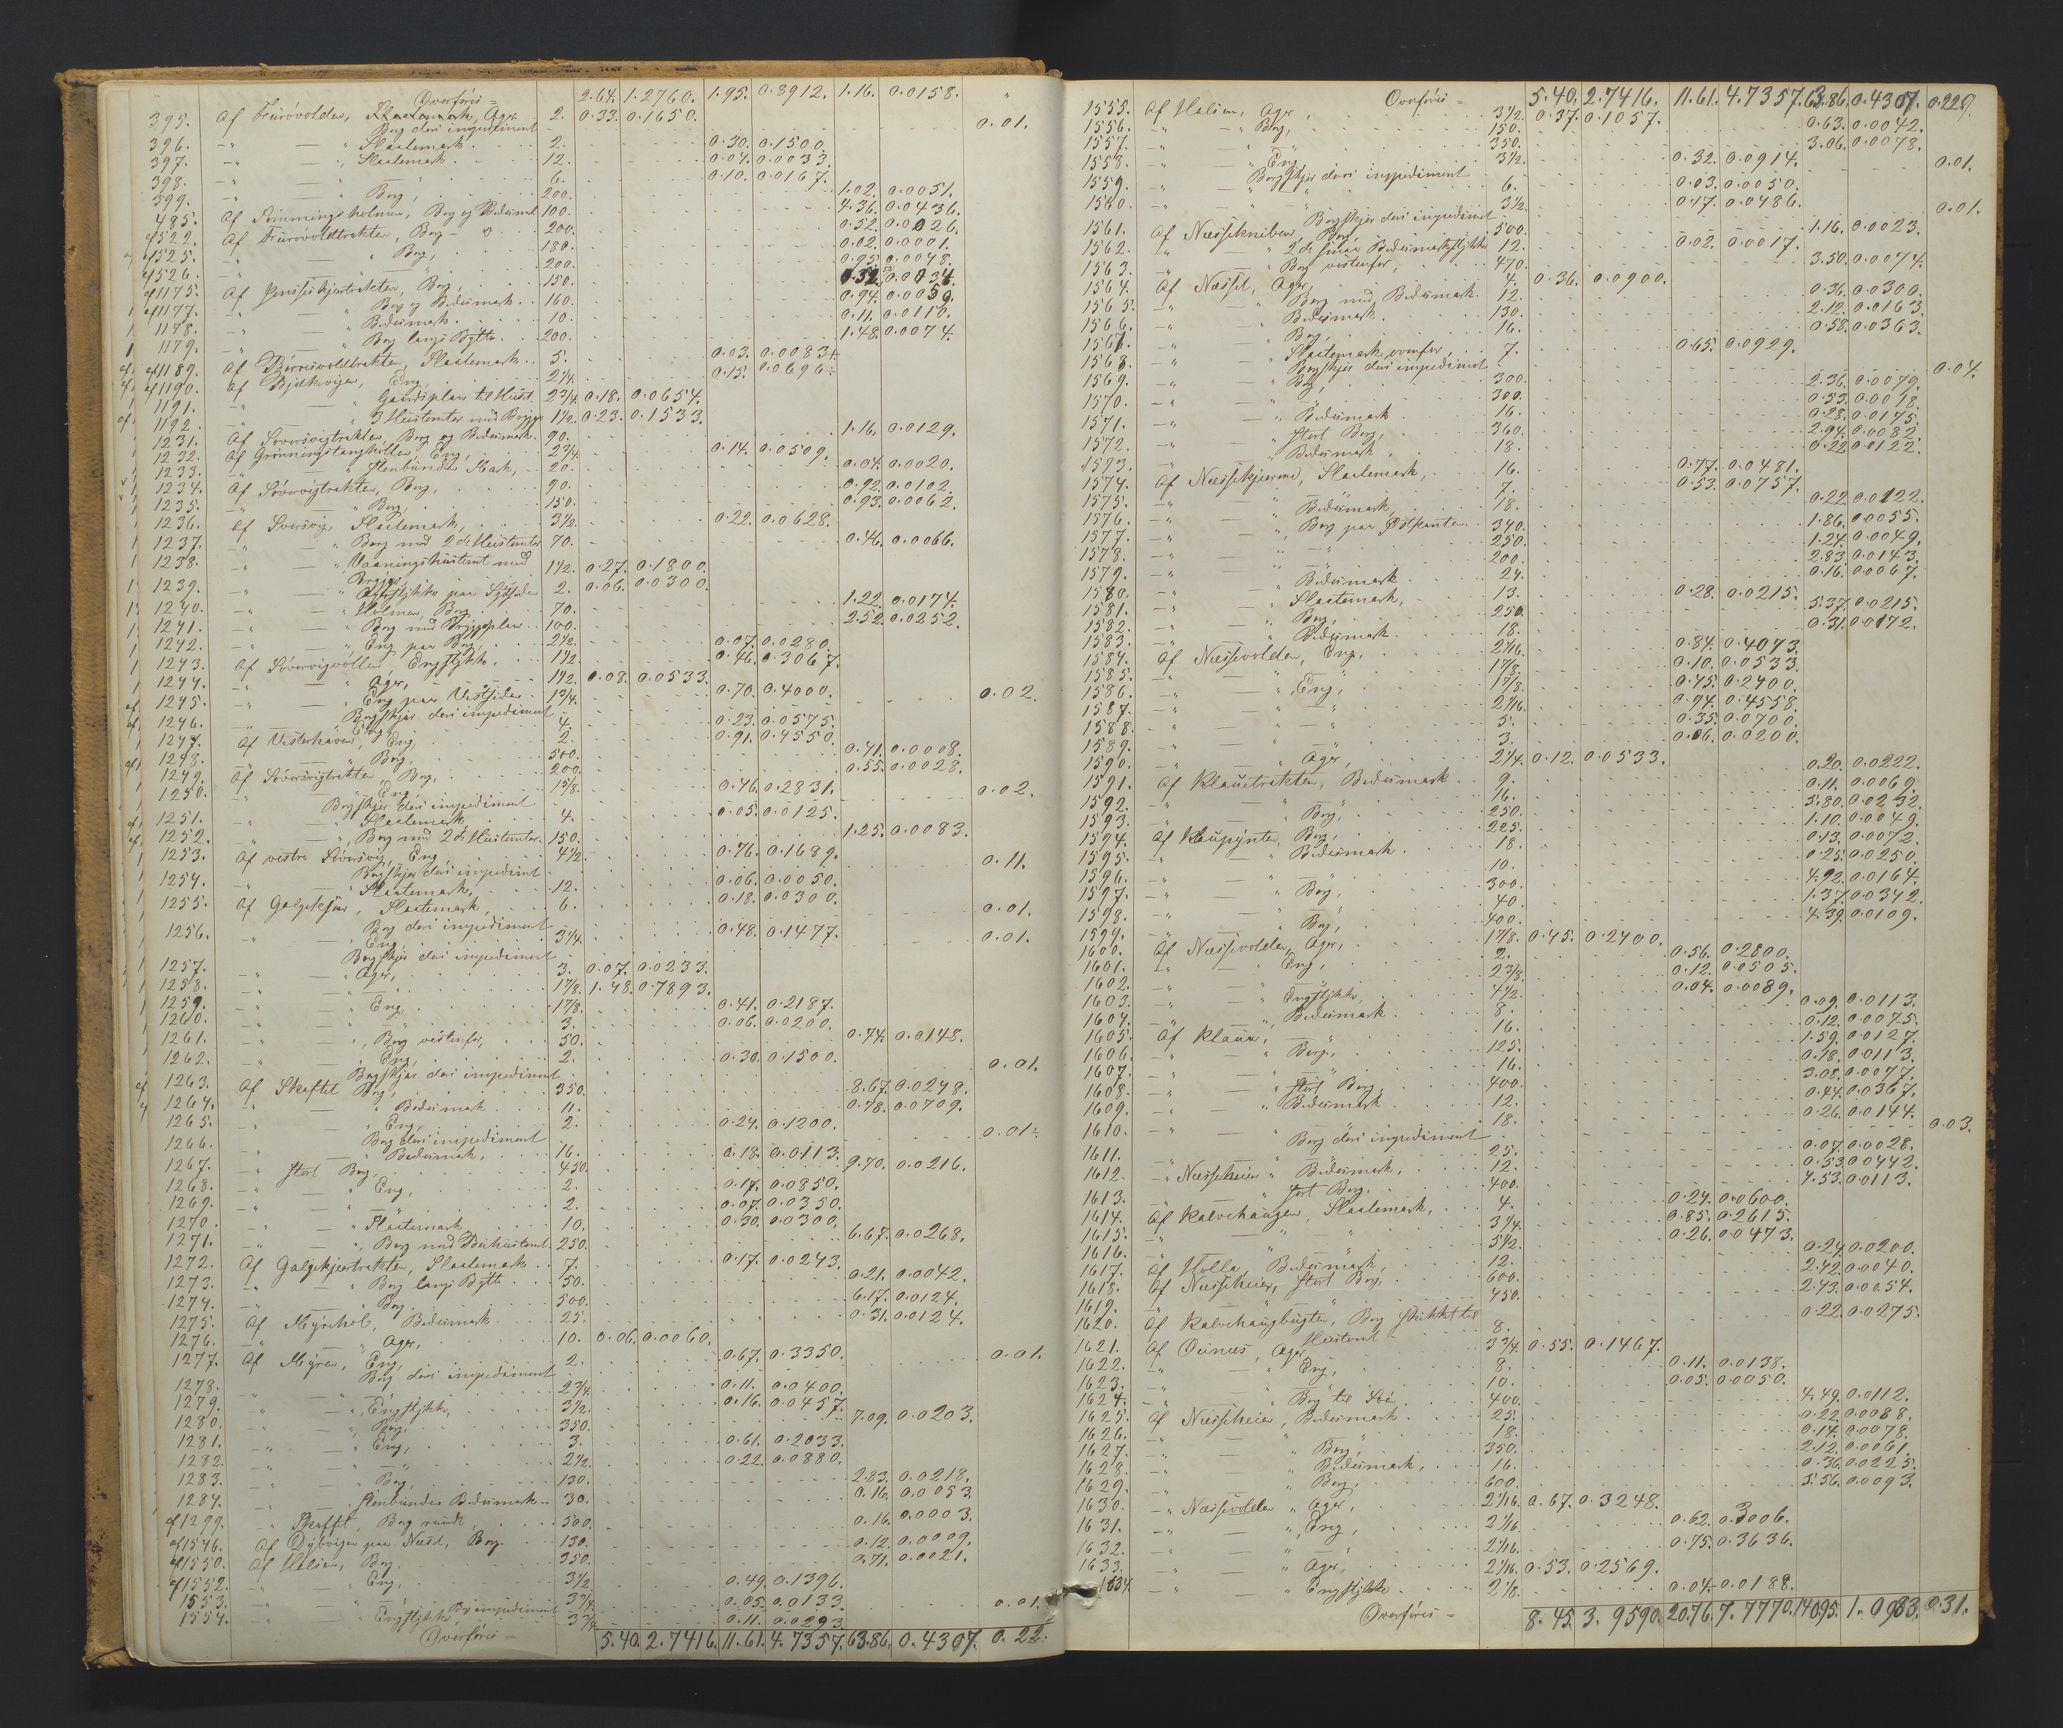 Overføris = 2.64. 1.2760. 1.95. 0.3912. 1.16. 0.0158. "
395. Af Furøvolden, Ager 2. 0.33. 0.1650.
Berg deri impediment 0.01.
396. -"- — " Slaatemark. 2. 0.30. 0.1500.
397. -"- — " Slaatemark. 12. 0.04. 0.0033.
398. -"- — " " 6. 0.10. 0.0167.
399. -"- — " Berg, 200. 1.02. 0.0051.
485. Af holmen, Berg og Bedesmark 100. 4.36. 0.0436.
af 522. Af Furøvoldtrakten, Berg 200. 0.52. 0.0026.
af 525. " " Berg, 180. 0.02. 0.0001.
af 526. " — " 200. 0.95. 0.0048.
af 1175. Af Berg, 150.
af 1177. " Berg og Bedesmark. 160. 0.94. 0.0059.
1178. -"- — " Bedesmark. 10. 0.11. 0.0110.
1179. -"- — " Berg langs Bytte 200. 1.48. 0.0074.
af 1189. Slaatemark. 5. 0.03. 0.0083
af 1190. Af Eng, 2¼. 0.15. 0.0696
1191. " 2¾. 0.18. 0.0654.
1192. " 3 Hustomter med Brygge 1½. 0.23. 0.1533.
1231. Af Søversvigtrakten, Berg og Bedesmark. 90. 1.16. 0.0129.
1232. Af Eng, 2¾. 0.14. 0.0509.
1233. " — " Stenbundet Mark, 20. 0.04. 0.0020.
1234. Af Søversvigtrakten, Berg, 90. 0.92. 0.0102.
1235. -"- — " Berg, 150. 0.93. 0.0062.
1236. Af Sversvig, Slaatemark, 3½. 0.22. 0.0628.
1237. -"- — " Berg med 2 de Hustomter 70. 0.46. 0.0066.
1238. -"- — " Vaaningshustomt med Brygge 1½. 0.27. 0.1800.
1239. -"- — " Agerstykke paa Sydside 2. 0.06. 0.0300.
1240. -"- — " Holmen, Berg 70. 1.22. 0.0174.
1241. -"- — " Berg med Bryggeplan 100. 2.52. 0.0252.
1242. -"- — " Eng paa Berg 2½. 0.07. 0.0280.
1243. Af Søversvigvollen Engstykke, 1½. 0.46. 0.3067.
1244. -"- — " Ager, 1½. 0.08. 0.0533.
1245. -"- — " Eng paa Vestsiden 1¾. 0.70. 0.4000.
Bergskjær deri impediment 0.02.
1246. " Eng, 4. 0.23. 0.0575.
1247. Af Vesterhaven, Eng, 2. 0.91. 0.4550.
1248. -"- — " Berg, 500. 0.41. 0.0008.
1249. Af Søversvigtrakten, Berg, 200. 0.55. 0.0028.
1250. -"- — " Eng, 1⅝. 0.46. 0.2831.
Bergskjær deri impediment 0.02.
1251. -"- — " Slaatemark 4. 0.05. 0.0125.
1252. -"- — " Berg med 2 de Hustomter. 150. 1.25. 0.0083.
1253. Af vestre Søversvig, Eng 4½. 0.76. 0.1689.
Bergskjær deri impediment 0.11.
1254. -"- — " Slaatemark, 12. 0.06. 0.0050.
1255. Af Galgeskjær, Slaatemark, 6. 0.18. 0.0300.
Berg deri impediment 0.01.
1256. -"- — " Eng 3¼. 0.48. 0.1477.
Bergskjær deri impediment 0.01.
1257. -"- — " Ager, 3. 0.07. 0.0233.
1258. -"- — " " 1⅞. 1.48. 0.7893.
1259. -"- — " Eng, 1⅞. 0.41. 0.2187.
1260. -"- — " " 3. 0.06. 0.0200.
1261. -"- — " Berg vestenfor, 50. 0.74. 0.0148.
1262. -"- — " Eng, 2. 0.30. 0.1500.
Bergskjær deri impediment 0.01.
1263. Af Skaftet Berg, 350. 8.67. 0.0248.
1264. -"- — " Bedesmark 11. 0.78. 0.0709.
1265. -"- — " Eng, 2. 0.24. 0.1200.
Berg deri impediment 0.01
1266. -"- — " Bedesmark, 16. 0.18. 0.0113.
1267. -"- stort Berg, 450. 9.70. 0.0216.
1268. -"- — " Eng, 2. 0.17. 0.0850.
1269. -"- — " — " 2. 0.07. 0.0350.
1270. -"- — " Slaatemark 10. 0.30. 0.0300.
1271. -"- — " Berg med hustomt 250. 6.67. 0.0268.
1272. Af Galgeskjærtrakten, Slaatemark 7. 0.17. 0.0243.
1273. -"- — " Berg langs Bytte 50. 0.21. 0.0042.
1274. -"- — " Berg. 500. 6.17. 0.0124.
1275. Af Myrehol, Bedesmark 25. 0.31. 0.0124.
1276. -"- — " Ager, 10. 0.06. 0.0060.
1277. Af Myren, Eng, 2. 0.67. 0.3350.
Berg deri impediment 0.01.
1278. -"- — " " 2¾. 0.11. 0.0400.
1279. -"- — " Engstykke, 3½. 0.16. 0.0457.
1280. -"- — " Berg, 350. 7.09. 0.0203.
1281. -"- — " Eng, 3. 0.61. 0.2033.
1282. -"- — " — " 2½. 0.22. 0.0880.
1283. -"- — " Berg, 130. 2.83. 0.0218.
1284. -"- — " Stenbundet Bedesmark 30. 0.16. 0.0053.
af 1299. -"- Skaftet, Berg rundt 500. 0.16. 0.0003.
af 1546. Af Dybvigen paa Næsd, Berg. 130. 0.12. 0.0009.
af 1550. Af Halsen, Berg 350. 0.71. 0.0021.
af 1552. -"- — " Eng, 3½. 0.49. 0.1396.
1553. -"- — " Berg impediment 3¾. 0.05. 0.0133. 0.01.
1554. -"- — " Engstykke 3¾. 0.11. 0.0293.
Overføris = 5.40. 2.7416. 11.61. 4.7357. 63.86. 0.4307. 0.22.
Overføris = 5.40. 2.7416. 11.61. 4.7357. 63.86. 0.4307. 0.22
1555. Af Halsen, Ager, 3½. 0.37. 0.1057.
1556. -"- — " Berg, 150. 0.63. 0.0042.
1557. -"- — " " 350. 3.06. 0.0078.
1558. -"- — " Eng 3½. 0.32. 0.0914.
Bergskjær deri impediment 0.01.
1559. -"- " " 6. 0.03. 0.0050.
1560. -"- " " 3½. 0.17. 0.0486.
Bergskjær deri impediment 0.01.
1561. Af Næssekniben, Berg 500. 1.16. 0.0023.
1562. -"- — " 2 de smaa Bedesmarkstykker 12. 0.02. 0.0017.
1563. -"- — " Berg vestenfor, 470. 3.50. 0.0074.
1564. Af Næsset, Ager, 4. 0.36. 0.0900.
1565. -"- — " Berg med Bedesmark. 12. 0.36. 0.0300.
1566. -"- — " Bedesmark 130. 2.12. 0.0163.
1567. -"- — " Berg, 16. 0.58. 0.0363.
1568. -"- — " Slaatemark ovenfor, 7. 0.65. 0.0929.
Bergskjær deri impediment 0.04.
1569. -"- — " Berg, 300. 2.36. 0.0079.
1570. -"- — " " 300. 0.53. 0.0018.
1571. -"- — " Bedesmark 16. 0.28. 0.0175.
1572. -"- — " stort Berg, 360. 2.94. 0.0082.
1573. -"- — " Bedesmark 18. 0.22. 0.0122.
1574. Af Næsseskjærene, Slaatemark, 16. 0.77. 0.0481.
1575. -"- — " " 7. 0.53. 0.0757.
1576. -"- — " Bedesmark, 18. 0.22. 0.0122.
1577. -"- — " Berg paa Østkanten 340. 1.86. 0.0055.
1578. -"- — " — " 250. 1.24. 0.0049.
1579. -"- — " " 200. 2.83. 0.0143.
1580. -"- — " Bedesmark 24. 0.16. 0.0067.
1581. -"- — " Slaatemark, 13. 0.28. 0.0215.
1582. -"- — " Berg, 250. 5.37. 0.0215.
1583. -"- — " Bedesmark 18. 0.31. 0.0172.
1584. Af Næssevolden, Eng, 2 1/16. 0.84. 0.4073.
1585. -"- — " " 1⅞. 0.10. 0.0533.
1586. -"- — " Eng, 1⅞. 0.45. 0.2400.
1587. -"- — " — " 2 1/16. 0.94. 0.4558.
1588. -"- — " — " 5. 0.35. 0.0700.
1589. -"- — " — " 3. 0.06. 0.0200.
1590. -"- — " Ager, 2¼. 0.12. 0.0533.
1591. Af Klauetrakten, Bedesmark 9. 0.20. 0.0222.
1592. -"- — " " 16. 0.11. 0.0069.
1593. -"- — " Berg, 250. 5.80. 0.0232.
1594. Af Klaupynten, Berg, 225. 1.10. 0.0049.
1595. -"- — " Bedesmark 18. 0.13. 0.0072.
1596. -"- — " " 10. 0.25. 0.0250.
1597. -"- — " Berg, 300. 4.92. 0.0164.
1598. -"- — " " 40. 1.37. 0.0342.
1599. -"- — " Berg, 400. 4.39. 0.0109.
1600. Af Næssevolden, Ager, 1⅞. 0.45. 0.2400.
1601. -"- — " Eng, 2. 0.56. 0.2800.
1602. -"- — " " 2⅜. 0.12. 0.0505.
1603. -"- — " Engstykke, 4½. 0.04. 0.0089.
1604. -"- — " Bedesmark 8. 0.09. 0.0113.
1605. Af Klauen, — " 16. 0.12. 0.0075.
1606. -"- — " Berg, 125. 1.59. 0.0127.
1607. -"- — " " 16. 0.18. 0.0113.
1608. -"- — " stort Berg, 400. 3.08. 0.0077.
1609. -"- — " Bedesmark 12. 0.44. 0.0367.
1610. -"- — " " 18. 0.26. 0.0144.
Berg deri impediment 0.03.
1611. -"- — " — " 25. 0.07. 0.0028.
1612. -"- Næsseheien " Bedesmark, 12. 0.53. 0.0442.
1613. -"- " stort Berg. 400. 4.53. 0.0113.
1614. Af Kalvehaugen, Slaatemark, 4. 0.24. 0.0600.
1615. -"- " " 3¼. 0.85. 0.2615.
1616. -"- " " 5½. 0.26. 0.0473.
1617. Af Holla, Bedesmark, 12. 0.24. 0.0200.
1618. Af Næsseheien, stort Berg, 600. 2.42. 0.0040.
1619. -"- " " 450. 2.43. 0.0054.
1620. Af Kalvehaugbugten, Berg skikket til Hustomt 8. 0.22. 0.0275.
1621. Af Ager, 3¾. 0.55. 0.1467.
1622. -"- — " Eng, 8. 0.11. 0.0138.
1623. -"- — " " 10. 0.05. 0.0050.
1624. -"- — " Berg til Søen, 400. 4.49. 0.0112.
1625. Af Næsseheien, Bedesmark 25. 0.22. 0.0088.
1626. -"- — " " 18. 0.14. 0.0078.
1627. -"- — " Berg, 350. 2.12. 0.0061.
1628. -"- — " Bedesmark, 16. 0.36. 0.0225.
1629. -"- — " Berg, 600. 5.56. 0.0093.
1630. -"- Næssevolden " Ager, 2 1/16. 0.67. 0.3248.
1631. -"- — " Eng, 2 1/16. 0.62. 0.3006.
1632. -"- — " " 2 1/16. 0.75. 0.3636.
1633. -"- — " Ager, 2 1/16. 0.53. 0.2569.
1634. -"- " Engstykke 2⅛. 0.04. 0.0188.
Overføris = 8.45. 3.9590. 20.76. 7.7770. 140.95. 1.0983. 0.31.